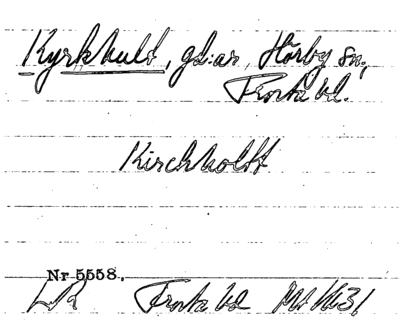 Kyrkhult, gd:ar, Hörby sn,
Frosta hd.
Kirchholtt
Nr 5558.
LR Frosta hd